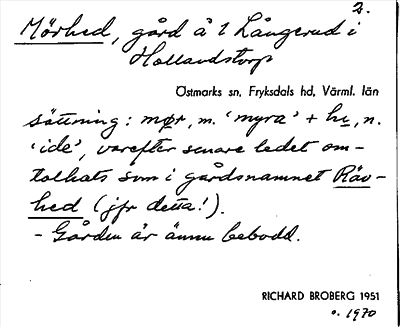 2.
Mörhed, gård å 1 Långerud i
Hollandstorp
Östmarks sn, Fryksdals hd, Värml. län
sättning: mør, m. 'myra' + hi, n.
'ide', varefter senare ledet om-
tolkats som i gårdsnamnet Räv-
hed (jfr detta!).
- Gården är ännu bebodd.
RICHARD BROBERG 1951
o. 1970